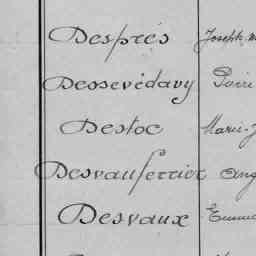 Després Joseph
Dessevédavy
Destoc Marie-J
Desvauferrier Ang
Desvaux